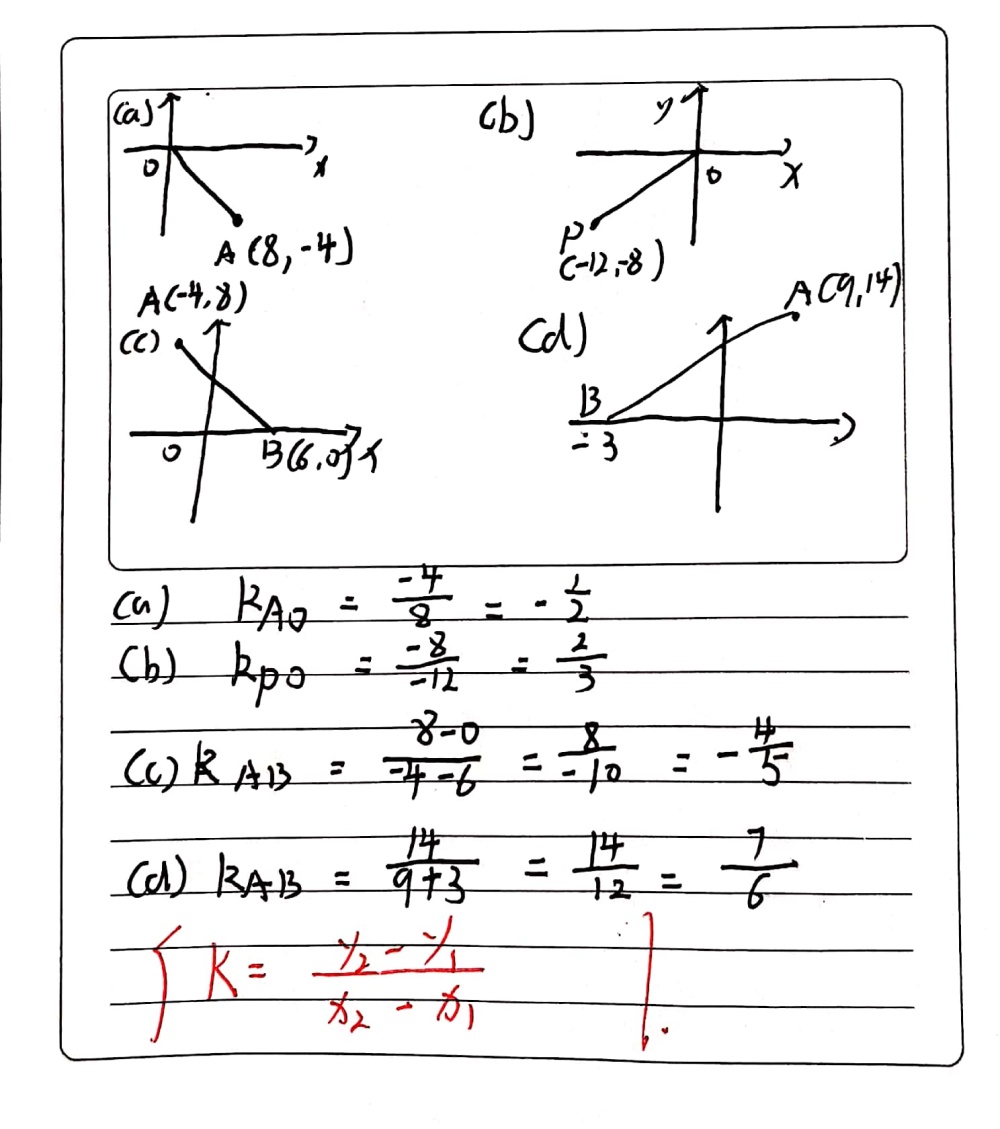 (a)
0 x
A (8, -4)
(b) y
0 x
P
(-12,-8)
A(-4,8)
(c)
0 B(6,0) x
(d) A(9,14)
B
-3
(a) k_{AO} = \frac{-4}{8} = -\frac{1}{2}
(b) k_{PO} = \frac{-8}{-12} = \frac{2}{3}
(c) k_{AB} = \frac{8-0}{-4-6} = \frac{8}{-10} = -\frac{4}{5}
(d) k_{AB} = \frac{14}{9+3} = \frac{14}{12} = \frac{7}{6}
K = \frac{y_2 - y_1}{x_2 - x_1}